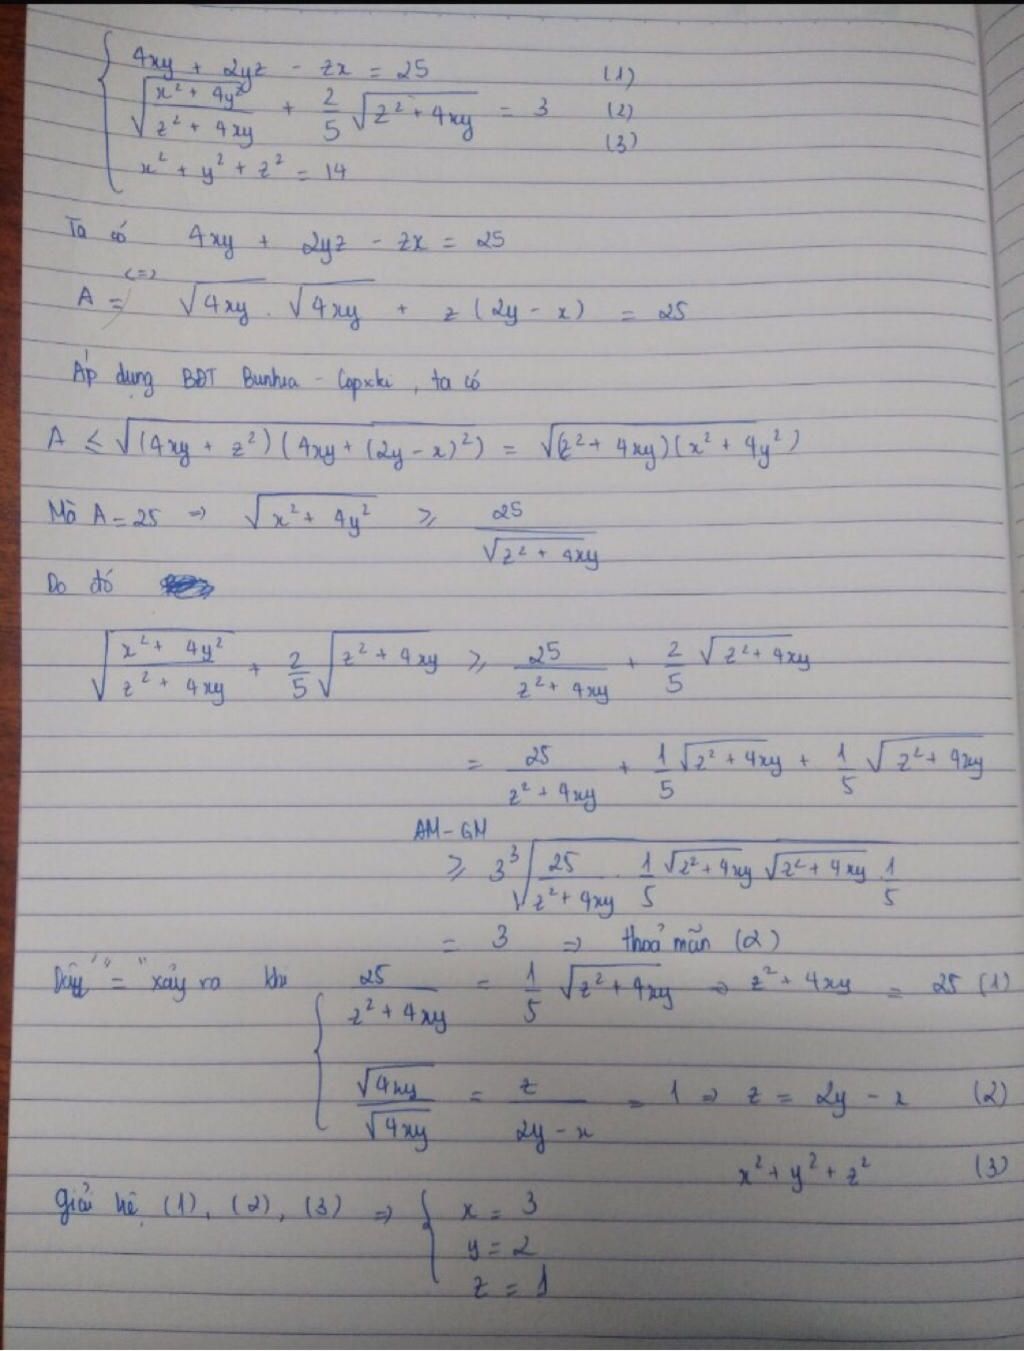 4xy + 2yz - zx = 25 (1)
√((x² + 4y²)/(z² + 4xy)) + 2/5 √(z² + 4xy) = 3 (2)
x² + y² + z² = 14 (3)
Ta có 4xy + 2yz - zx = 25
<=>
A = √(4xy) . √(4xy) + z (2y - x) = 25
Áp dụng BĐT Bunhia - Copxki, ta có
A ≤ √((4xy + z²)(4xy + (2y - x)²)) = √((z² + 4xy)(x² + 4y²))
Mà A = 25 => √(x² + 4y²) ≥ 25/√(z² + 4xy)
Do đó
√((x² + 4y²)/(z² + 4xy)) + 2/5 √(z² + 4xy) ≥ 25/(z² + 4xy) + 2/5 √(z² + 4xy)
= 25/(z² + 4xy) + 1/5 √(z² + 4xy) + 1/5 √(z² + 4xy)
AM-GM
≥ 3 ³√(25/(z² + 4xy) . 1/5 √(z² + 4xy) √(z² + 4xy) . 1/5)
= 3 => thoả mãn (2)
Dấu "=" xảy ra khi 25/(z² + 4xy) = 1/5 √(z² + 4xy) => z² + 4xy = 25 (1)
√(4xy)/√(4xy) = z/(2y - x) = 1 => z = 2y - x (2)
x² + y² + z² (3)
Giải hệ (1), (2), (3) => { x = 3
y = 2
z = 1